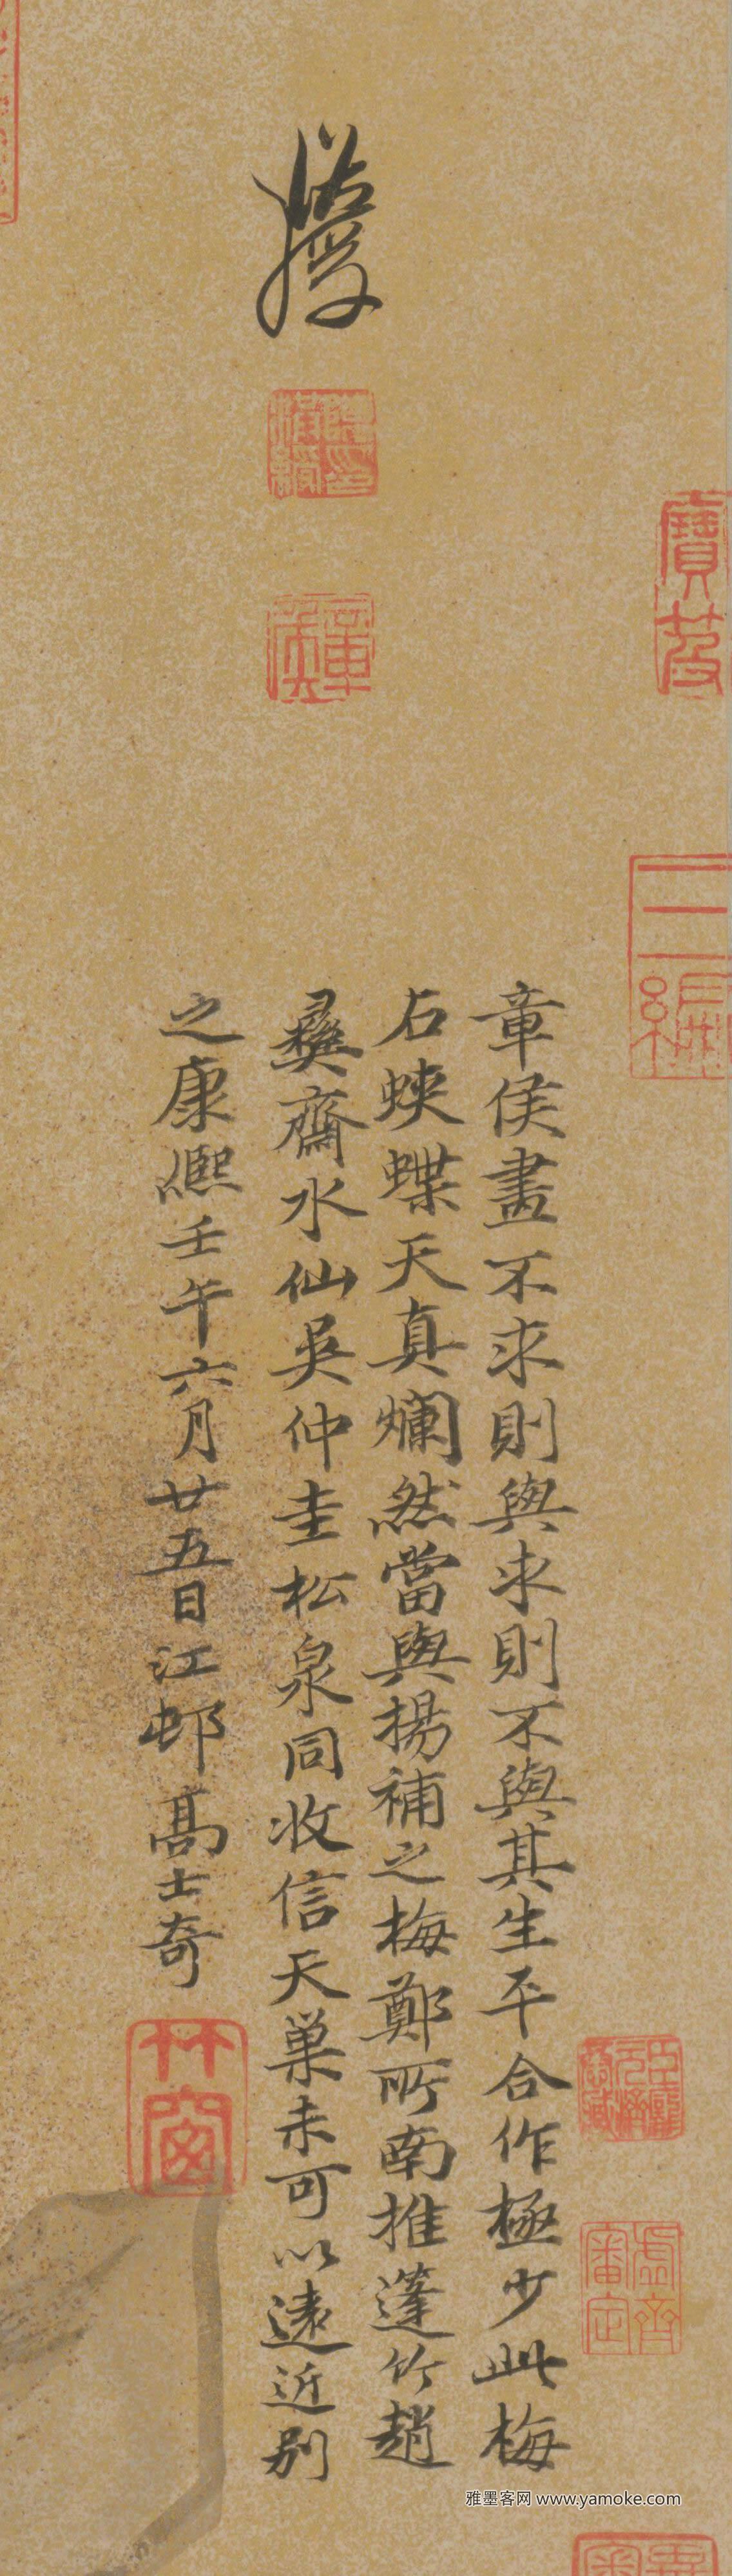 章侯畫不求則與求則不與其生平合作極少此梅
石蛺蝶天真爛然當與揚補之梅鄭所南推篷竹趙
彝齋水仙吳仲圭松泉同收信天巢未可以遠近別
之康熙壬午六月廿五日江邨高士奇
竹窗
寶笈
三編
章侯
虛齋審定
雅墨客网 www.yamoke.com